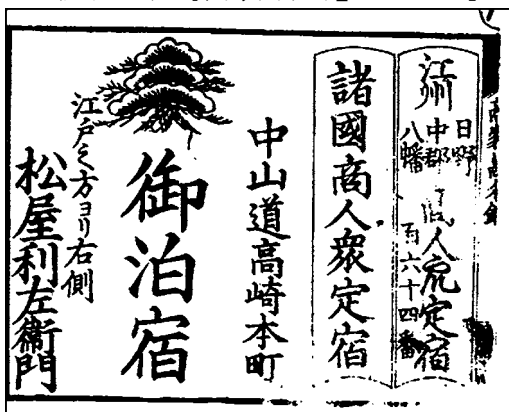 江州
日野
中郡
八幡
人衆定宿
百六十四番
諸國商人衆定宿
中山道高崎本町
御泊宿
江戸之方ヨリ右側
松屋利左衞門